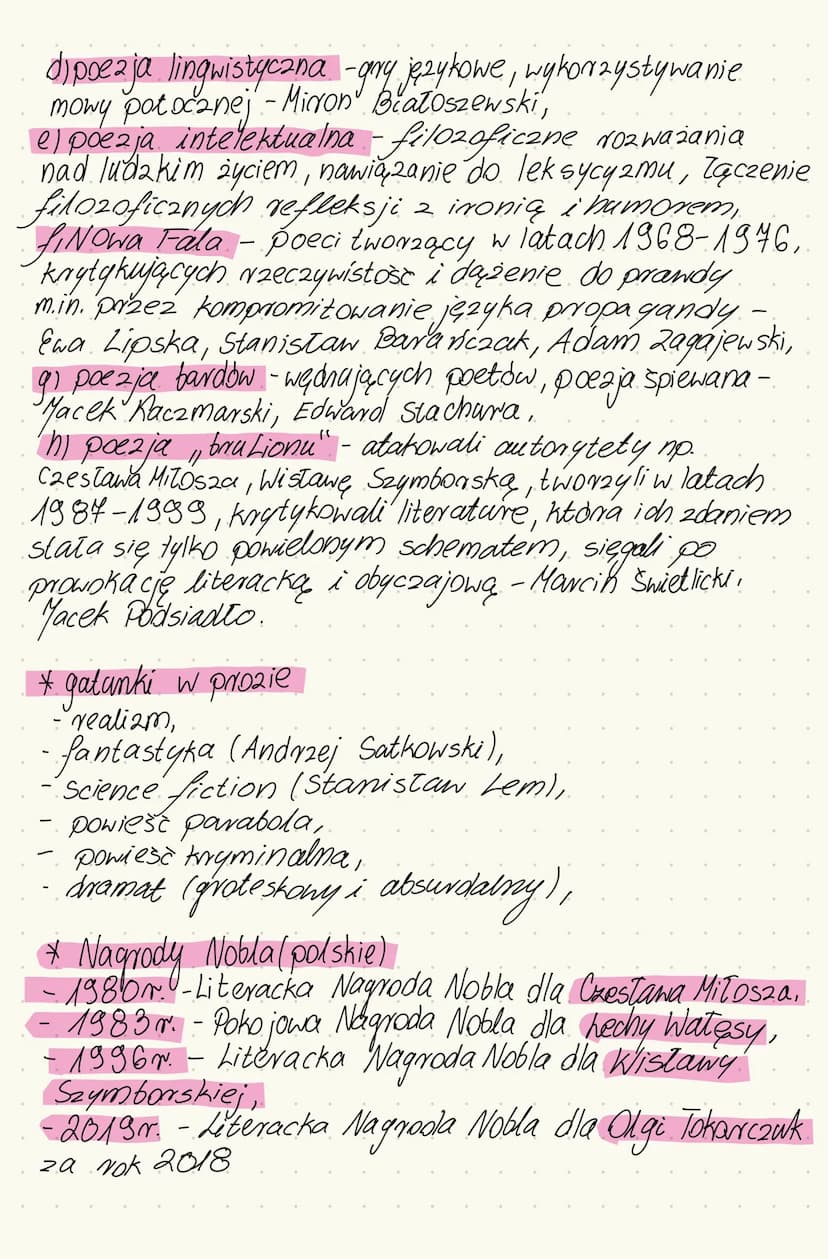 d) poezja lingwistyczna - gry językowe, wykorzystywanie
mowy potocznej - Miron Białoszewski,
e) poezja intelektualna - filozoficzne rozważania
nad ludzkim życiem, nawiązanie do leksycyzmu, łączenie
filozoficznych refleksji z ironią i humorem,
f) Nowa Fala - poeci tworzący w latach 1968-1976,
krytykujących rzeczywistość i dążenie do prawdy
m.in. przez kompromitowanie języka propagandy -
Ewa Lipska, Stanisław Barańczak, Adam Zagajewski,
g) poezja bardów - wędrujących poetów, poezja śpiewana -
Jacek Kaczmarski, Edward Stachura,
h) poezja „bruLionu" - atakowali autorytety np.
Czesława Miłosza, Wisławę Szymborską, tworzyli w latach
1987-1999, krytykowali literaturę, która ich zdaniem
stała się tylko powielonym schematem, sięgali po
prowokację literacką i obyczajową - Marcin Świetlicki,
Jacek Podsiadło.
* gatunki w prozie
- realizm,
- fantastyka (Andrzej Satkowski),
- science fiction (Stanisław Lem),
- powieść parabola,
- powieść kryminalna,
- dramat (groteskowy i absurdalny),
* Nagrody Nobla (polskie)
- 1980r. - Literacka Nagroda Nobla dla Czesława Miłosza,
- 1983r. - Pokojowa Nagroda Nobla dla Lechy Wałęsy,
- 1996r. - Literacka Nagroda Nobla dla Wisławy
Szymborskiej,
- 2019r. - Literacka Nagroda Nobla dla Olgi Tokarczuk
za rok 2018